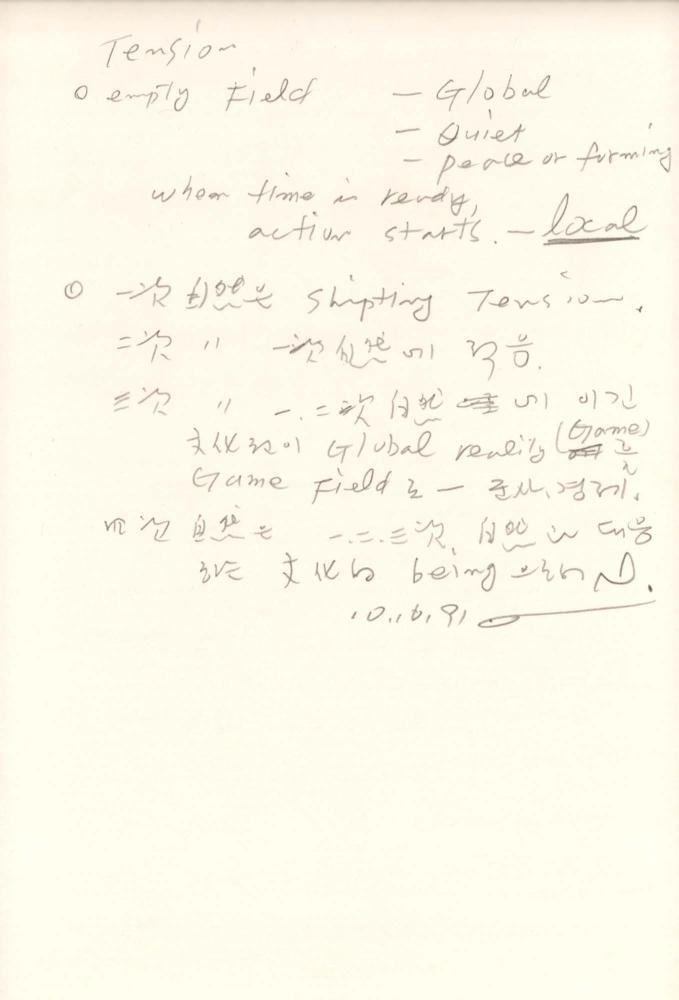 Tension
o empty Field — Global
— Quiet
— peace or forming
when time is ready,
action starts. — local
o 一次 自然은 Shipting Tension.
二次 〃 一次自然에 적응.
三次 〃 一.二次 自然에 이긴
文化적이 Global reality (Game)를
Game Field로 —
四次 自然은 一.二.三次. 自然 대응
하는 文化的 being 으로
10.16.91